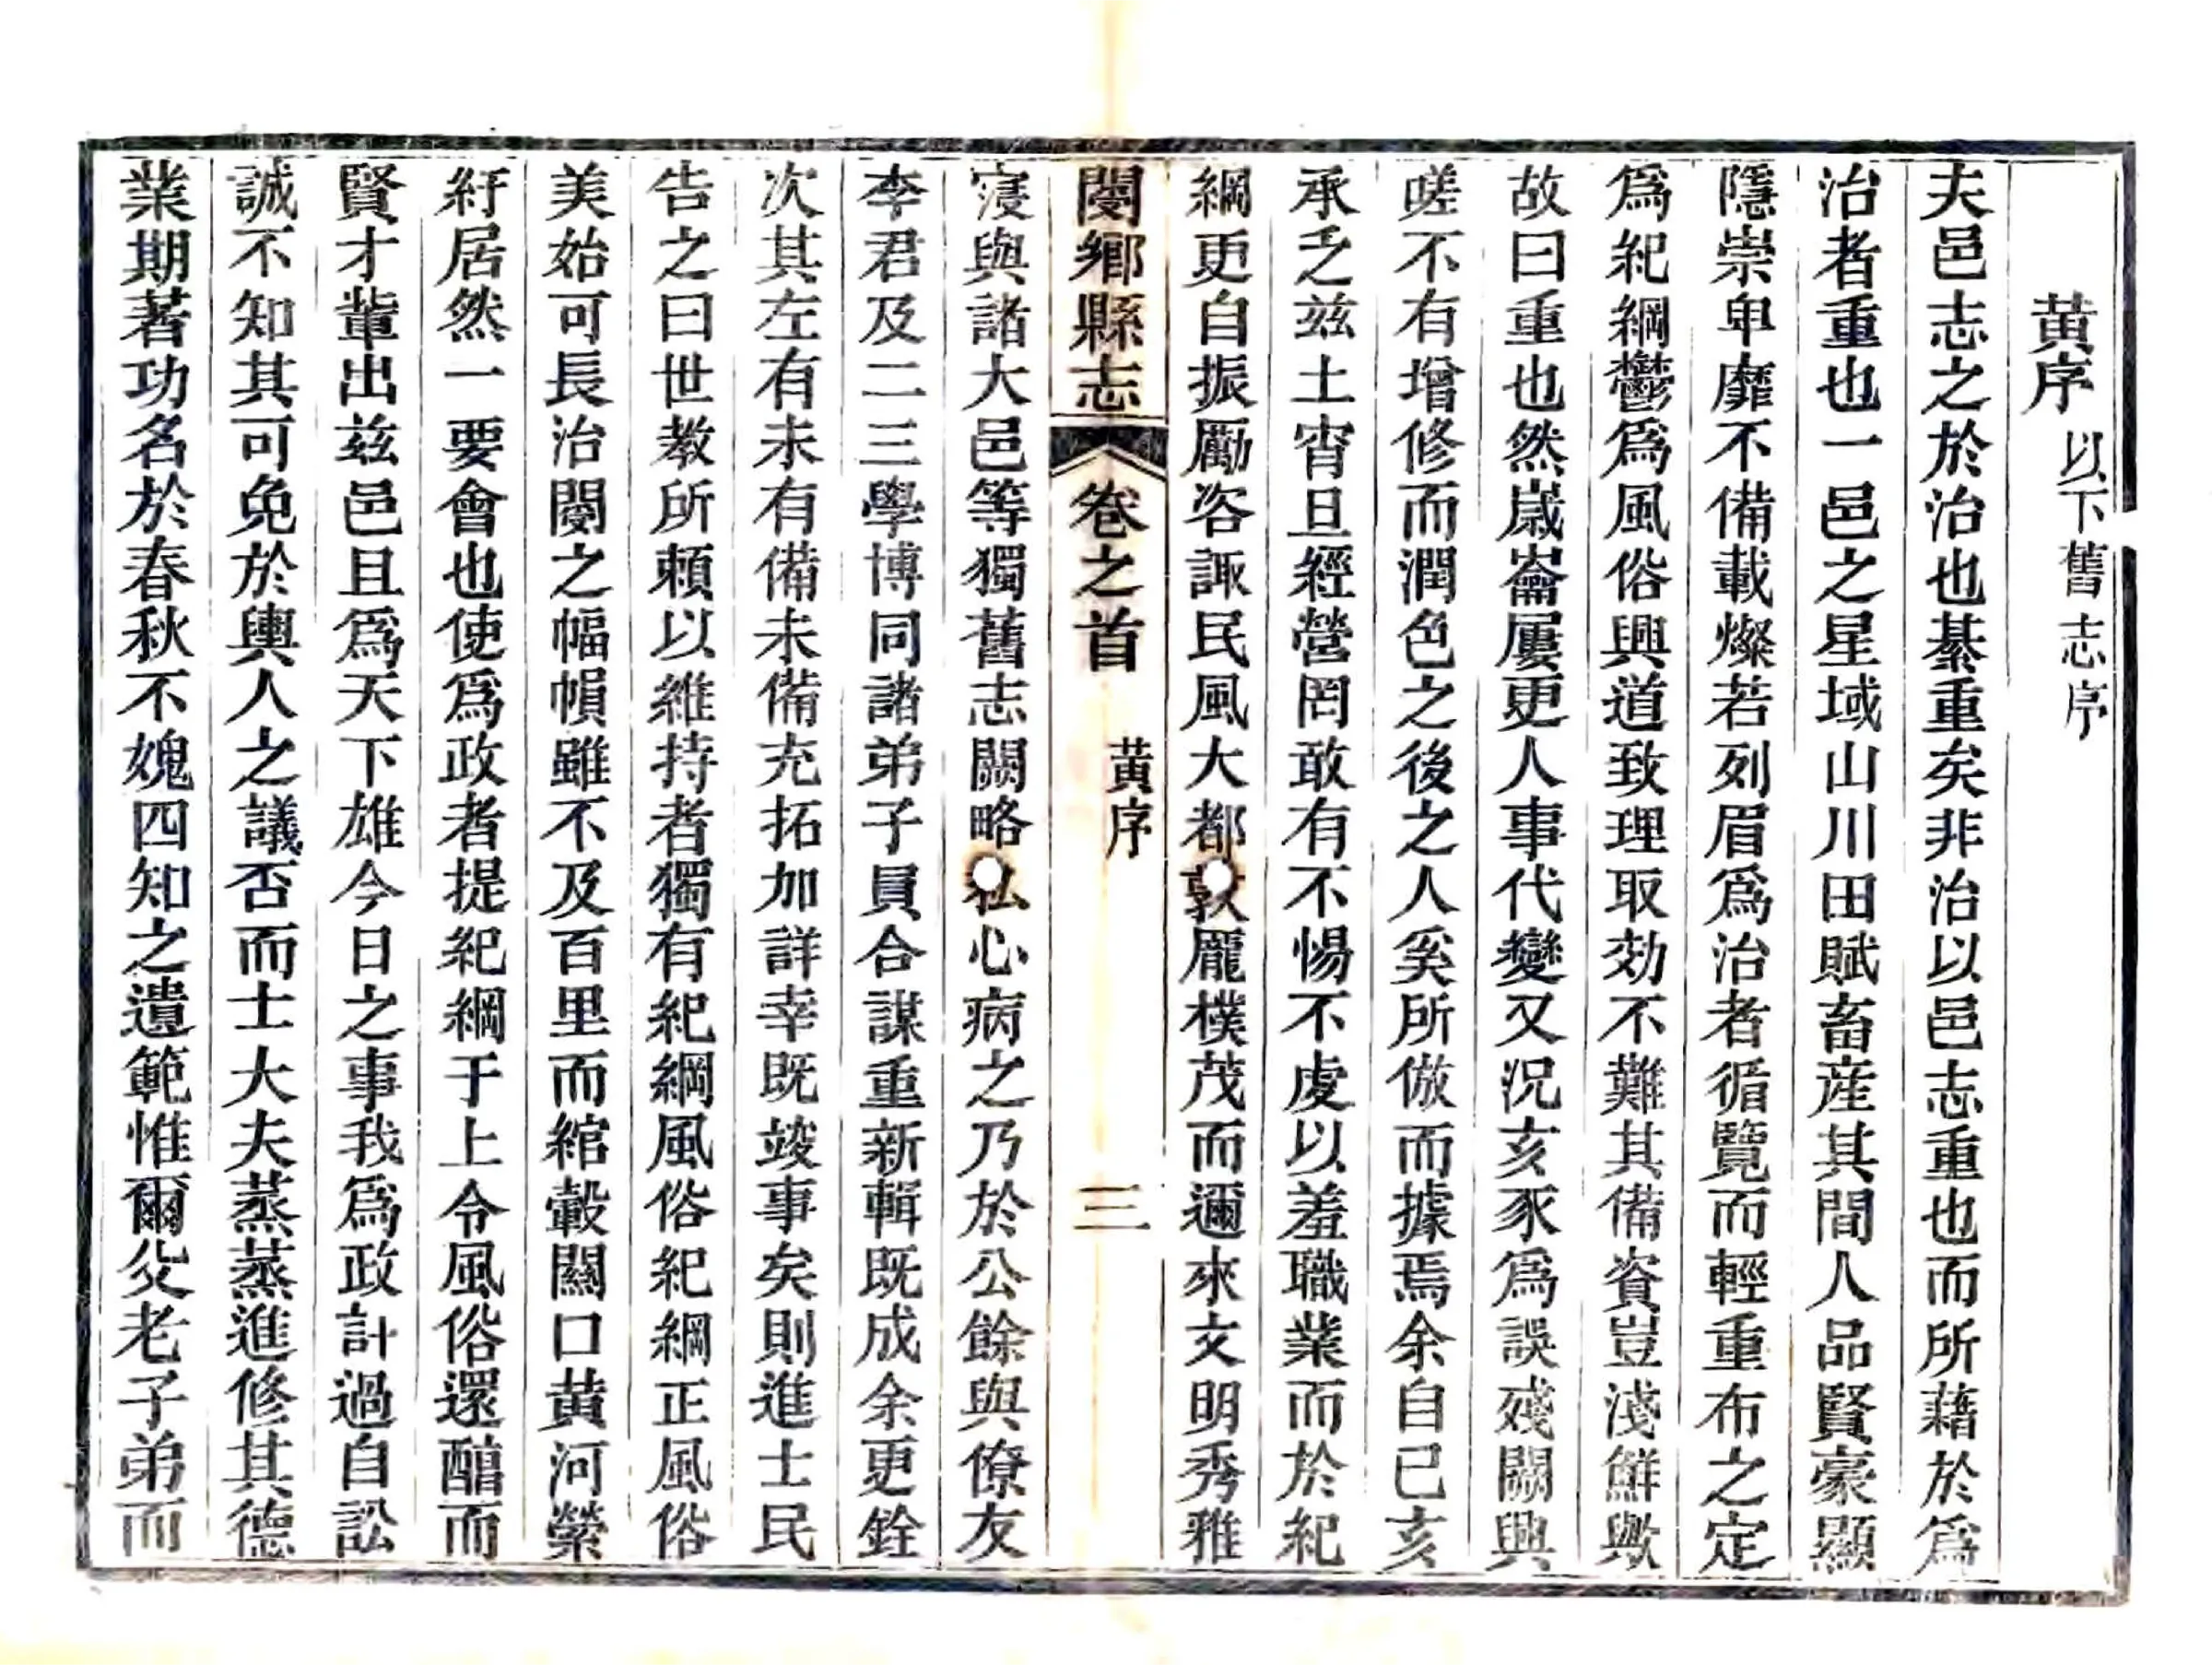 黄序以下舊志序
夫邑志之於治也綦重矣非治以邑志重也而所藉於爲
治者重也一邑之星域山川田賦畜産其間人品賢豪顯
隱崇卑靡不備載燦若列眉爲治者循覽而輕重布之定
爲紀綱鬱爲風俗興道致理取効不難其備資豈淺鮮歟
故曰重也然嵗崙屢更人事代變又況亥豕爲誤殘闕興
嗟不有增修而潤色之後之人奚所倣而據焉余自已亥
承乏兹土宵旦經營罔敢有不惕不虔以羞職業而於紀
綱更自振勵咨諏民風大都敦龎樸茂而邇來文明秀雅
閿鄉縣志
卷之首
黄序
三
寖與諸大邑等獨舊志闕略私心病之乃於公餘與僚友
李君及二三學博同諸弟子員合謀重新輯既成余更銓
次其左有未有備未備充拓加詳幸既竣事矣則進士民
告之曰世教所頼以維持者獨有紀綱風俗紀綱正風俗
美始可長治閿之幅幀雖不及百里而綰轂關口黄河縈
紆居然一要會也使爲政者提紀綱于上令風俗還醕而
賢才軰出兹邑且爲天下雄今日之事我爲政計過自訟
誠不知其可免於輿人之議否而士大夫蒸蒸進修其德
業期著功名於春秋不媿四知之遺範惟爾父老子弟而